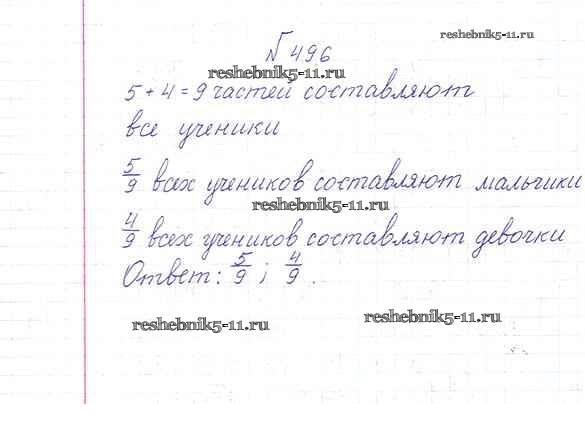 № 496
reshebnik5-11.ru
reshebnik5-11.ru
5 + 4 = 9 частей составляют
все ученики
5/9 всех учеников составляют мальчики
reshebnik5-11.ru
4/9 всех учеников составляют девочки
Ответ: 5/9 ; 4/9 .
reshebnik5-11.ru
reshebnik5-11.ru